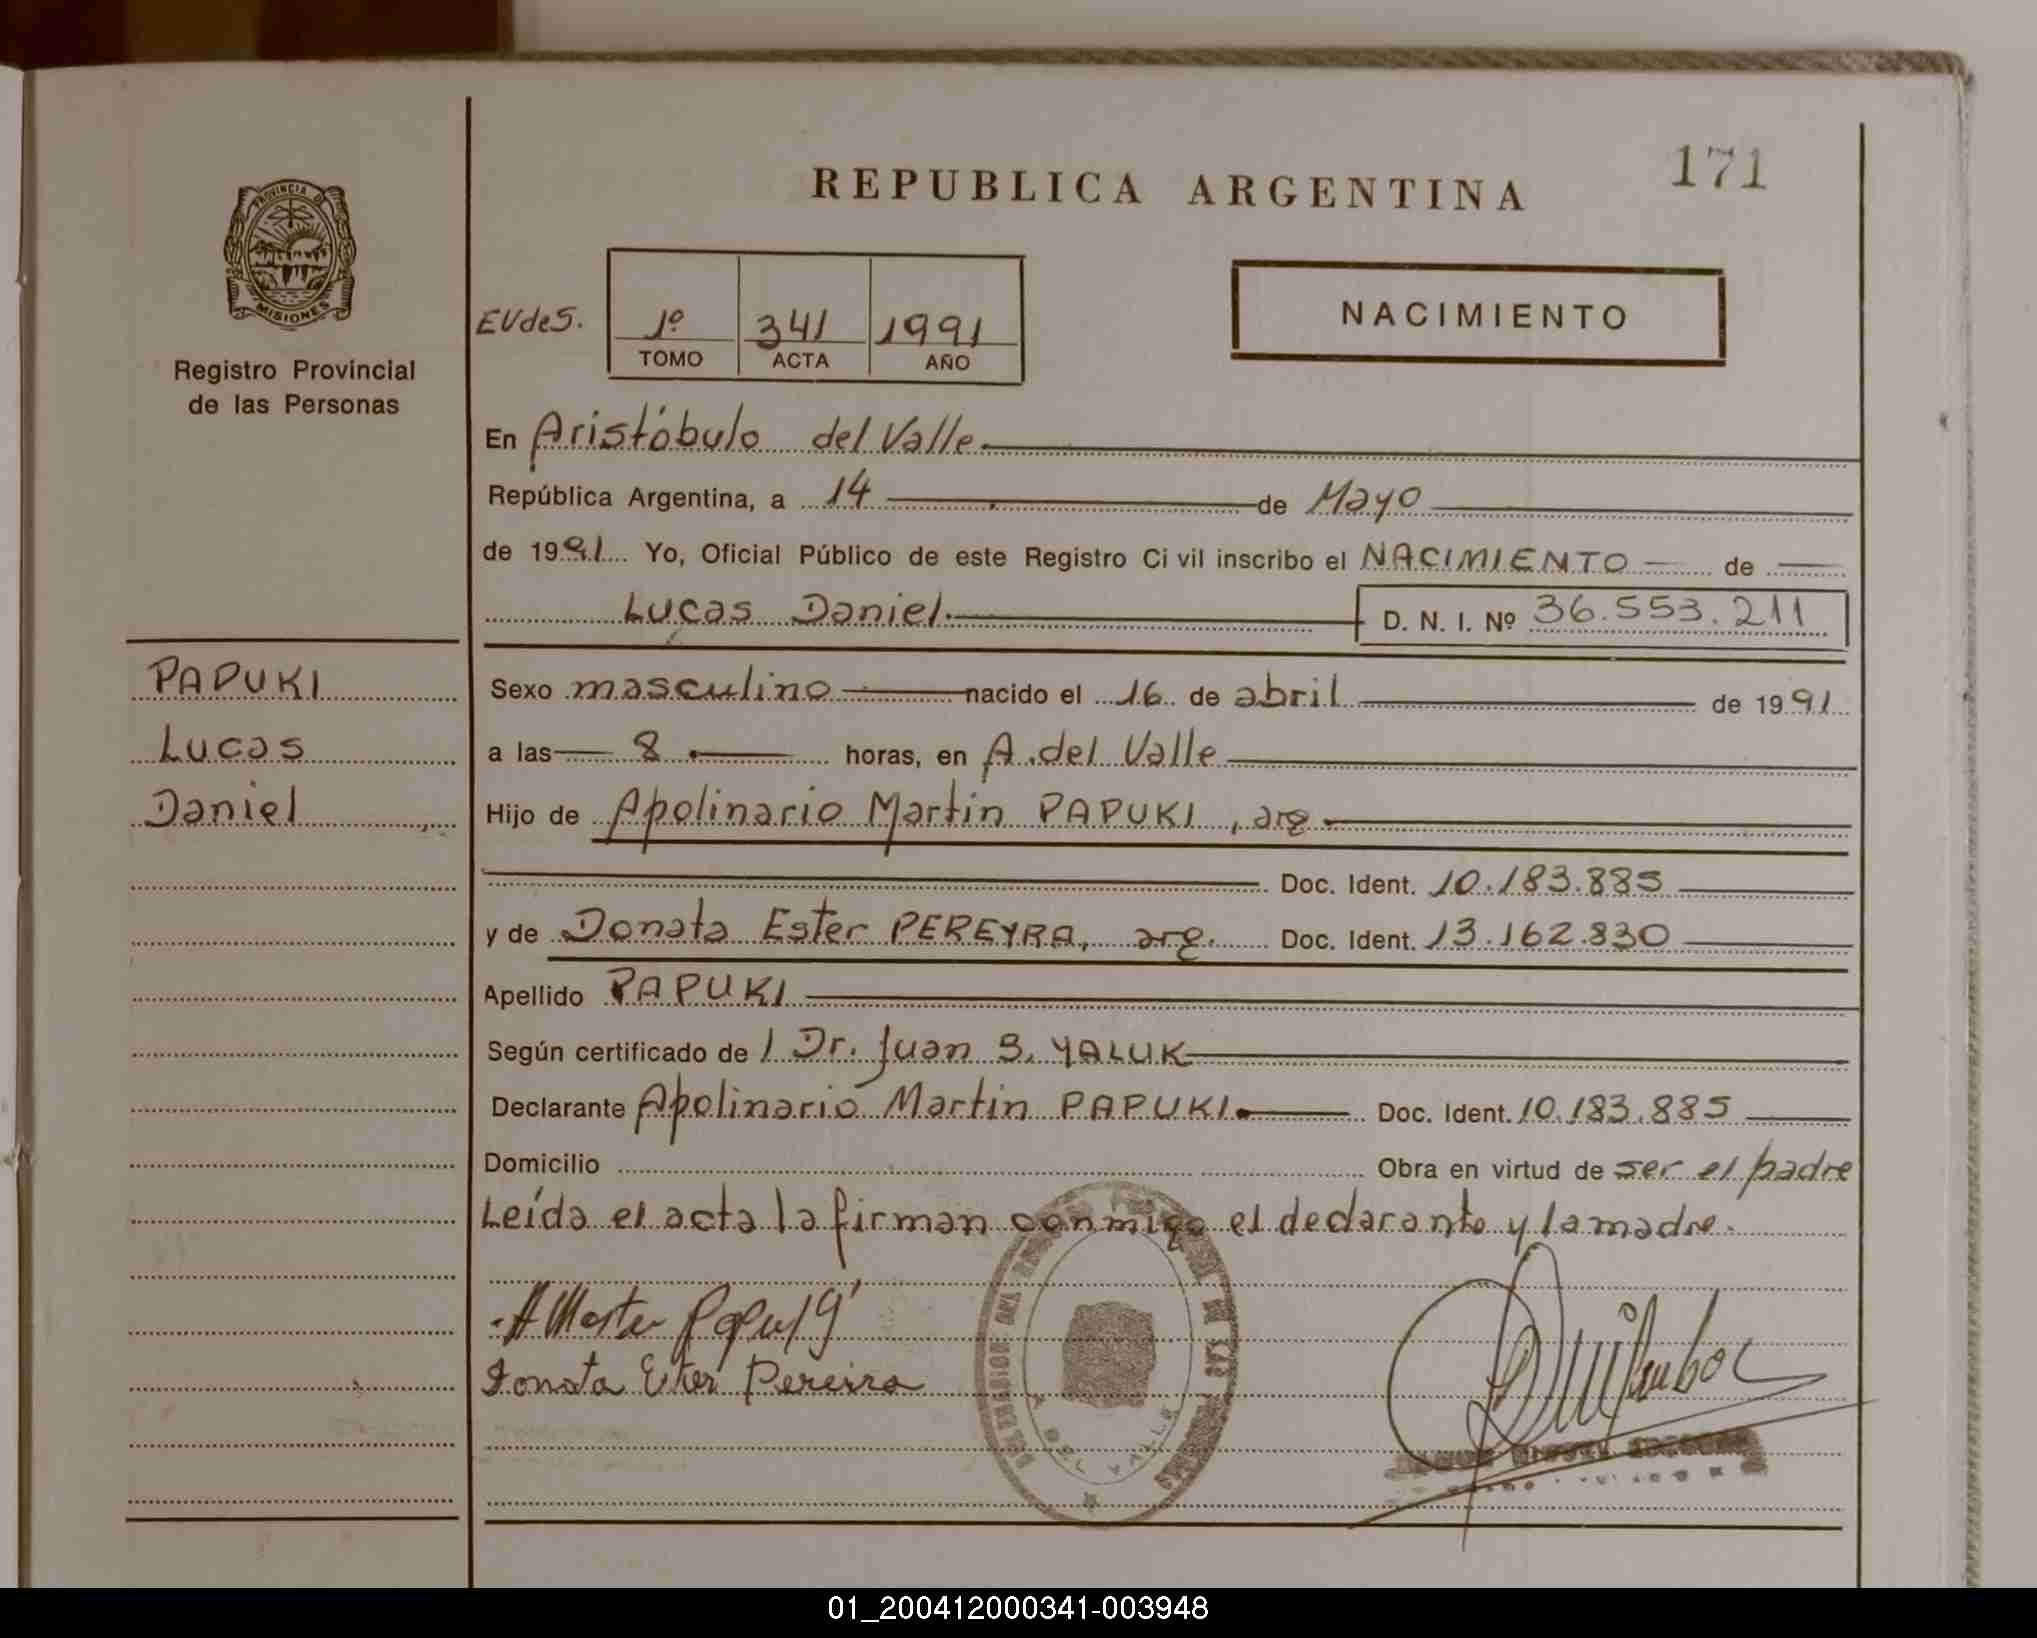 171
REPUBLICA ARGENTINA
PROVINCIA
MISIONES
Registro Provincial
de las Personas
EVdeS.
1º 341 1991
TOMO ACTA AÑO
NACIMIENTO
En Aristóbulo del Valle
República Argentina, a 14 de Mayo
de 1991 Yo, Oficial Público de este Registro Civil inscribo el NACIMIENTO de
Lucas Daniel. D. N. I. Nº 36.553.211
PAPUKI
Lucas
Daniel
Sexo masculino nacido el 16 de abril de 1991
a las 8 horas, en A. del Valle
Hijo de Apolinario Martin PAPUKI, arg.
Doc. Ident. 10.183.885
y de Donata Ester PEREYRA, arg. Doc. Ident. 13.162.830
Apellido PAPUKI
Según certificado de / Dr. Juan S. YALUK
Declarante Apolinario Martin PAPUKI. Doc. Ident. 10.183.885
Domicilio Obra en virtud de ser el padre
Leída el acta la firman conmigo el declarante y la madre.
Donata Ester Pereira
A. DEL VALLE
01_200412000341-003948